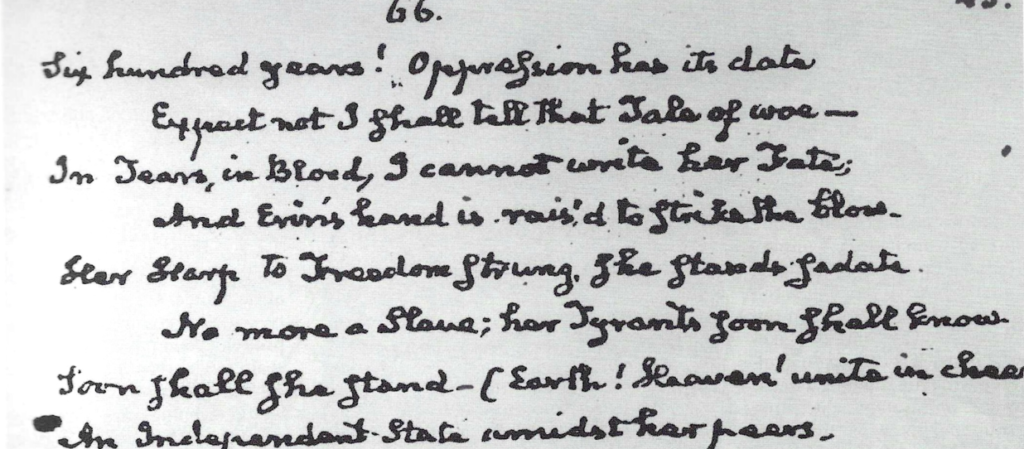 66.
Six hundred years! Oppreſsion has its date
Expect not I ſhall tell that Tale of woe —
In Tears, in Blood, I cannot write her Fate;
And Erin's hand is rais'd to ſtrike the blow.
Her Harp to Freedom ſtrung, ſhe ſtands ſedate.
No more a Slave; her Tyrants ſoon ſhall know.
Soon ſhall ſhe ſtand – (Earth! Heaven! unite in chee
An Independent State amidst her peers.